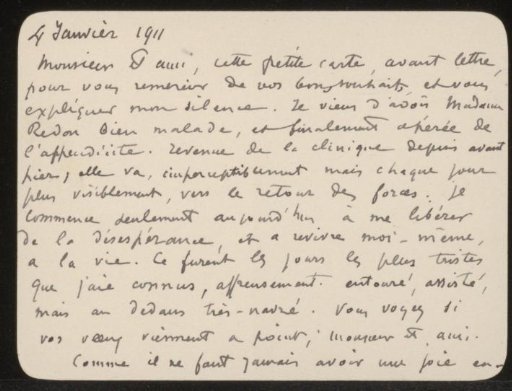 4 Janvier 1911
Monsieur & ami, cette petite carte, avant lettre,
pour vous remercier de vos bons souhaits, et vous
expliquer mon silence. Je viens d'avoir Madame
Redon bien malade, et finalement opérée de
l'appendicite. revenue de la clinique depuis avant
hier, elle va, imperceptiblement mais chaque jour
plus visiblement, vers le retour des forces. Je
commence seulement aujourd'hui à me libérer
de la désespérance, et a revivre moi-même,
a la vie. Ce furent les jours les plus tristes
que j'aie connus, affreusement. entouré, assisté,
mais au dedans très-navré. Vous voyez si
vos vœux viennent a point, monsieur & ami.
Comme il ne faut jamais avoir une joie en-